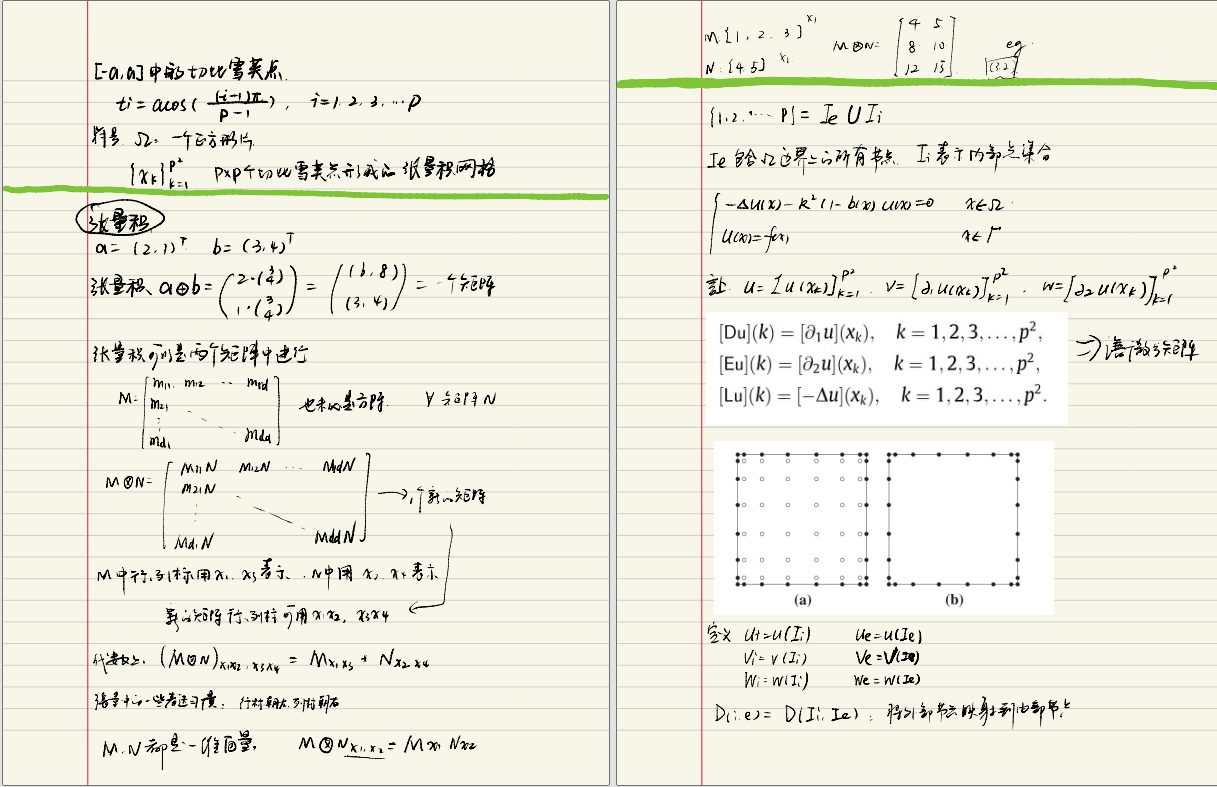 [-a,a]中的切比雪夫点.
ti = acos( (i-1)π / p-1 ), i=1,2,3,...p
符号 Ω: 一个正方形片
{xk}^{p²}_{k=1} p×p个切比雪夫点形成的张量积网格
张量积
a = (2,1)^T b = (3,4)^T
张量积、a⊗b = ( 2·(3 4) 1·(3 4) ) = ( (6,8) (3,4) ) = 一个矩阵
张量积可以是两个矩阵中进行
M = [ m11 m12 ... m1d
m21
⋮
md1 mdd ] ∀ 矩阵 N
M⊗N = [ M11N M12N ... M1dN
M21N
⋮
Md1N MddN ] → 个新的矩阵
M中行、列标用 x1, x3表示、N中用 x2, x4 表示
新的矩阵行、列标可用 x1x2, x3x4
(M⊗N)x1x2,x3x4 = Mx1x3 * Nx2x4
行标朝左,列标朝右
M.N都是一维向量, M⊗N x1,x2 = Mx1 Nx2
M:{1, 2, 3}^{x1}
N:{4 5} M⊗N= [ 4 5
8 10
12 15 ] eg.
(32)
{1,2,...p} = Ie U Ii
Ie 包含Ω边界上的所有节点 Ii 表示内部点集合
-Δu(x) - k²(1-b(x)) u(x)=0 x∈Ω
u(x)=f(x) x∈Γ
记. u = [u(xk)]^{p²}_{k=1} . v = [∂1u(xk)]^{p²}_{k=1} . w = [∂2u(xk)]^{p²}_{k=1}
[Du](k) = [∂₁u](x_k), k = 1, 2, 3, . . . , p²,
[Eu](k) = [∂₂u](x_k), k = 1, 2, 3, . . . , p²,
[Lu](k) = [−Δu](x_k), k = 1, 2, 3, . . . , p².
⇒谱微分矩阵
(a) (b)
定义 Ui=u(Ii) Ue=u(Ie)
Vi=v(Ii) Ve=V(Ie)
Wi=w(Ii) We=w(Ie)
D(i,e) = D(Ii,Ie): 将外部节点映射到内部节点